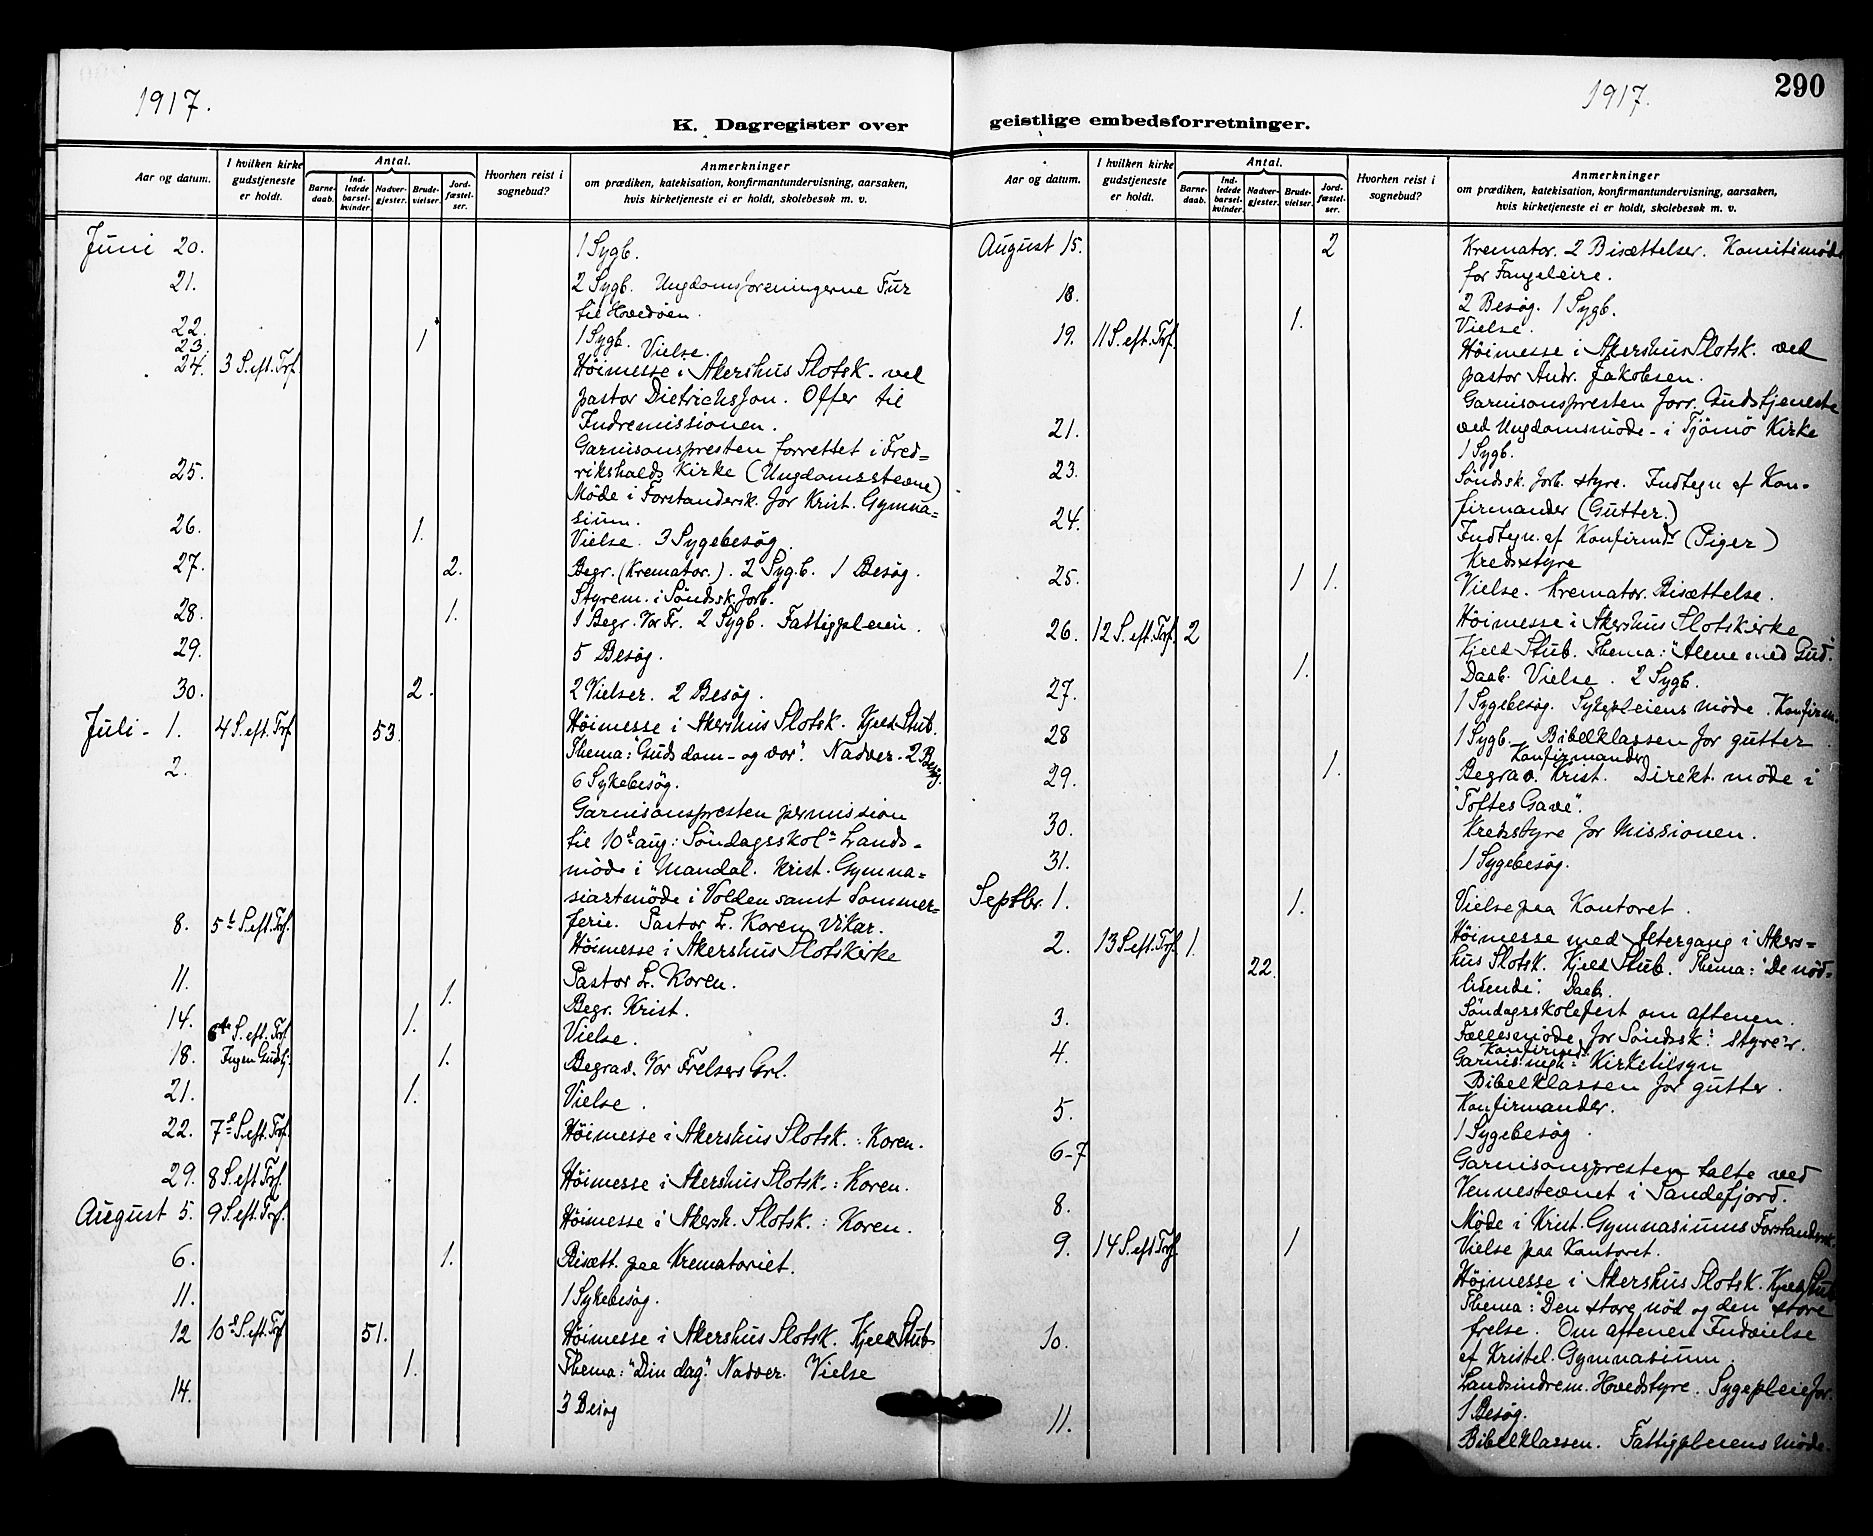 1917.
K. Dagregister over
Aar og datum. I hvilken kirke gudstjeneste er holdt. Antal. Barnedaab. Indledede barselkvinder. Nadvergjester. Brudevielser. Jordfæstelser. Hvorhen reist i sognebud? Anmerkninger
om prædiken, katekisation, konfirmantundervisning, aarsaken,
hvis kirketjeneste ei er holdt, skolebesøk m. v.
Juni 20. 1 Sygb.
21. 2 Sygb. Ungdomsforeningerne Tur
til Hovedøen.
22. 1 Sygb.
23. 1 Vielse.
24. 3 S. eft. Trf. Höimesse i Akershus Slotsk. ved
pastor Dietrichson. Offer til
Indremissionen.
Garnisonspresten forrettet i Fred-
rikshalds Kirke (Ungdomsstevne)
25. Møde i Forstandersk. for Krist. Gymna-
sium.
26. 1. Vielse. 3 Sygebesøg.
27. 2. Begr. (Kremator.). 2 Syg.b. 1 Besøg.
Styrem. i Söndsk. forb.
28. 1. 1 Begr. Vor Fr. 2 Sygb. Fattigpleien.
29. 5 Besøg.
30. 2. 2 Vielser. 2 Besøg.
Juli - 1. 4 S. eft. Trf. 53. Höimesse i Akershus Slotsk. Kjeld Stub.
Thema: "Guds dom - og vor". Nadver. 2 Besøg.
2. 6 Sykebesøg.
Garnisonspresten permission
til 10de aug: Söndagsskol. Lands-
møde i Mandal. Krist. Gymna-
siastmøde i Volden samt Sommer-
ferie. Pastor L. Koren Vikar.
8. 5te S. eft. Trf. Höimesse i Akershus Slotskirke
Pastor L. Koren.
11. 1. Begr. Krist.
14. 1. Vielse.
6te S. eft. Trf. Ingen Gudstj.
18. 1. Begrav. Vor Frelsers Grl.
21. 1. Vielse.
22. 7de S. eft. Trf. Höimesse i Akershus Slotsk. : Koren.
29. 8 S. eft Trf. Höimesse i Akershus Slotsk. : Koren.
August 5. 9 S. eft. Trf. Höimesse i Akersh. Slotsk. : Koren.
6. 1. Bisætt. paa Krematoriet.
11. 1 Sykebesøg.
12 10de S. eft. Trf 51. Höimesse i Akershus Slotsk. Kjeld Stub.
1. Thema: "Din dag". Nadver. Vielse
14. 3 Besøg
1917. 290
geistlige embedsforretninger.
Aar og datum. I hvilken kirke gudstjeneste er holdt. Antal. Barnedaab. Indledede barselkvinder. Nadvergjester. Brudevielser. Jordfæstelser. Hvorhen reist i sognebud? Anmerkninger
om prædiken, katekisation, konfirmantundervisning, aarsaken,
hvis kirketjeneste ei er holdt, skolebesøk m. v.
August 15. 2 Kremator. 2 Bisættelser. Komitemøde
for Fangeleire.
18. 2 Besøg. 1 Sygb.
1. Vielse.
19. 11 S. eft. Trf. Höimesse i Akershus Slotsk. ved
pastor Andr. Jakobsen.
Garnisonspresten forr. Gudstjeneste
ved Ungdomsmøde - i Tjömö Kirke
21. 1 Sygb.
23. Söndsk. forb. styre. Indtegn. af Kon-
firmander (Gutter.)
24. Indtegn. af Konfirmdr (Piger)
Kredsstyre
25. 1 1. Vielse. Kremator. Bisættelse.
26. 12 S. eft. Trf. 2 Höimesse i Akershus Slotskirke
Kjeld Stub. Thema: "Alene med Gud."
1. Daab. Vielse. 2 Sygb.
27. 1 Sygebesøg. Sykepleiens møde. Konfirm.
28 1 Sygb. Bibelklassen for gutter.
Konfirmander
29. 1. Begrav. Krist. Direkt. møde i
"Toftes Gave".
30. Kredsstyre for Missionen.
31. 1 Sygebesøg.
Septbr. 1. 1. Vielse paa Kontoret.
2. 13 S. eft. Trf. 1. Höimesse med Altergang i Akers-
22. hus Slotsk. Kjeld Stub. Thema: "De nöd-
lidende". Daab.
Söndagsskolefest om aftenen.
3. Fællesmøde for Söndsk: styrer.
Konfirmand.
4. Kirketilsyn
Bibelklassen for gutter.
5. Konfirmander.
1 Sygebesøg.
6-7 Garnisonspresten talte ved
Vennestevnet i Sandefjord.
8. Møde i Krist. Gymnasiums Forstandersk.
1 Vielse paa Kontoret.
9. 14 S. eft Trf. Höimesse i Akershus Slotsk. Kjeld Stub
Thema: "Den store nöd og den store
frelse. Om aftenen Indvielse
af Kristel. Gymnasium.
10. Landsindrem. Hovedstyre. Sygepleiefor.
1 Besøg.
11. Bibelklassen. Fattigpleiens Møde.